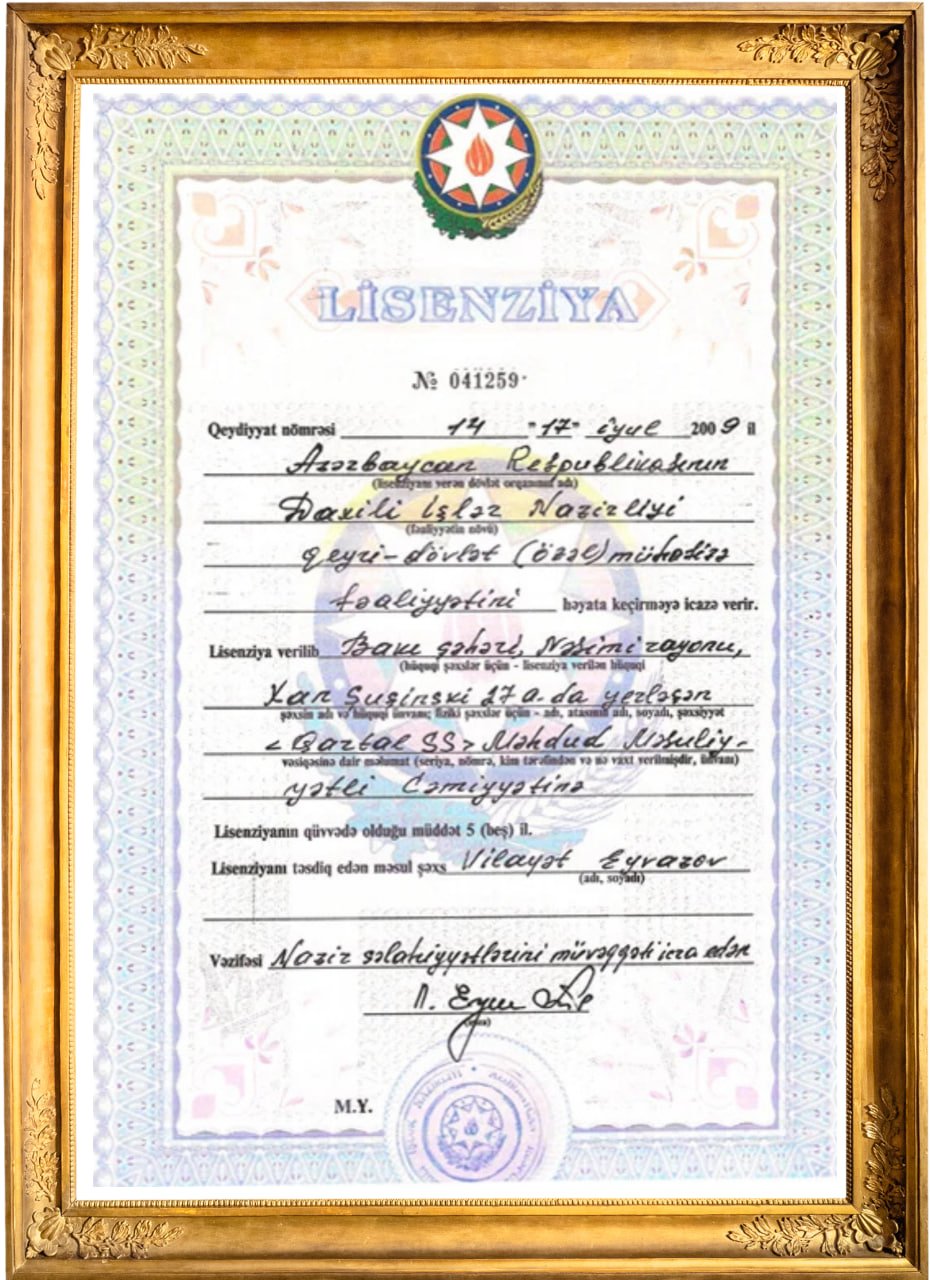 LİSENZİYA
№ 041259
Qeydiyyat nömrəsi 14 "17" iyul 2009 il
Azərbaycan Respublikasının
(lisenziyanı verən dövlət orqanının adı)
Daxili İşlər Nazirliyi
(fəaliyyətin növü)
qeyri-dövlət (özəl) mühafizə
fəaliyyətini həyata keçirməyə icazə verir.
Lisenziya verilib Bakı şəhəri, Nəsimi rayonu,
(hüquqi şəxslər üçün - lisenziya verilən hüquqi
Xan Şuşinski 27 a. da yerləşən
şəxsin adı və hüquqi ünvanı; fiziki şəxslər üçün - adı, atasının adı, soyadı, şəxsiyyət
< Qartal SS > Məhdud Məsuliy-
vəsiqəsinə dair məlumat (seriya, nömrə, kim tərəfindən və nə vaxt verilmişdir, ünvanı)
yətli Cəmiyyətinə
Lisenziyanın qüvvədə olduğu müddət 5 (beş) il.
Lisenziyanı təsdiq edən məsul şəxs Vilayət Eyvazov
(adı, soyadı)
Vəzifəsi Nazir səlahiyyətlərini müvəqqəti icra edən
(imza)
M.Y.